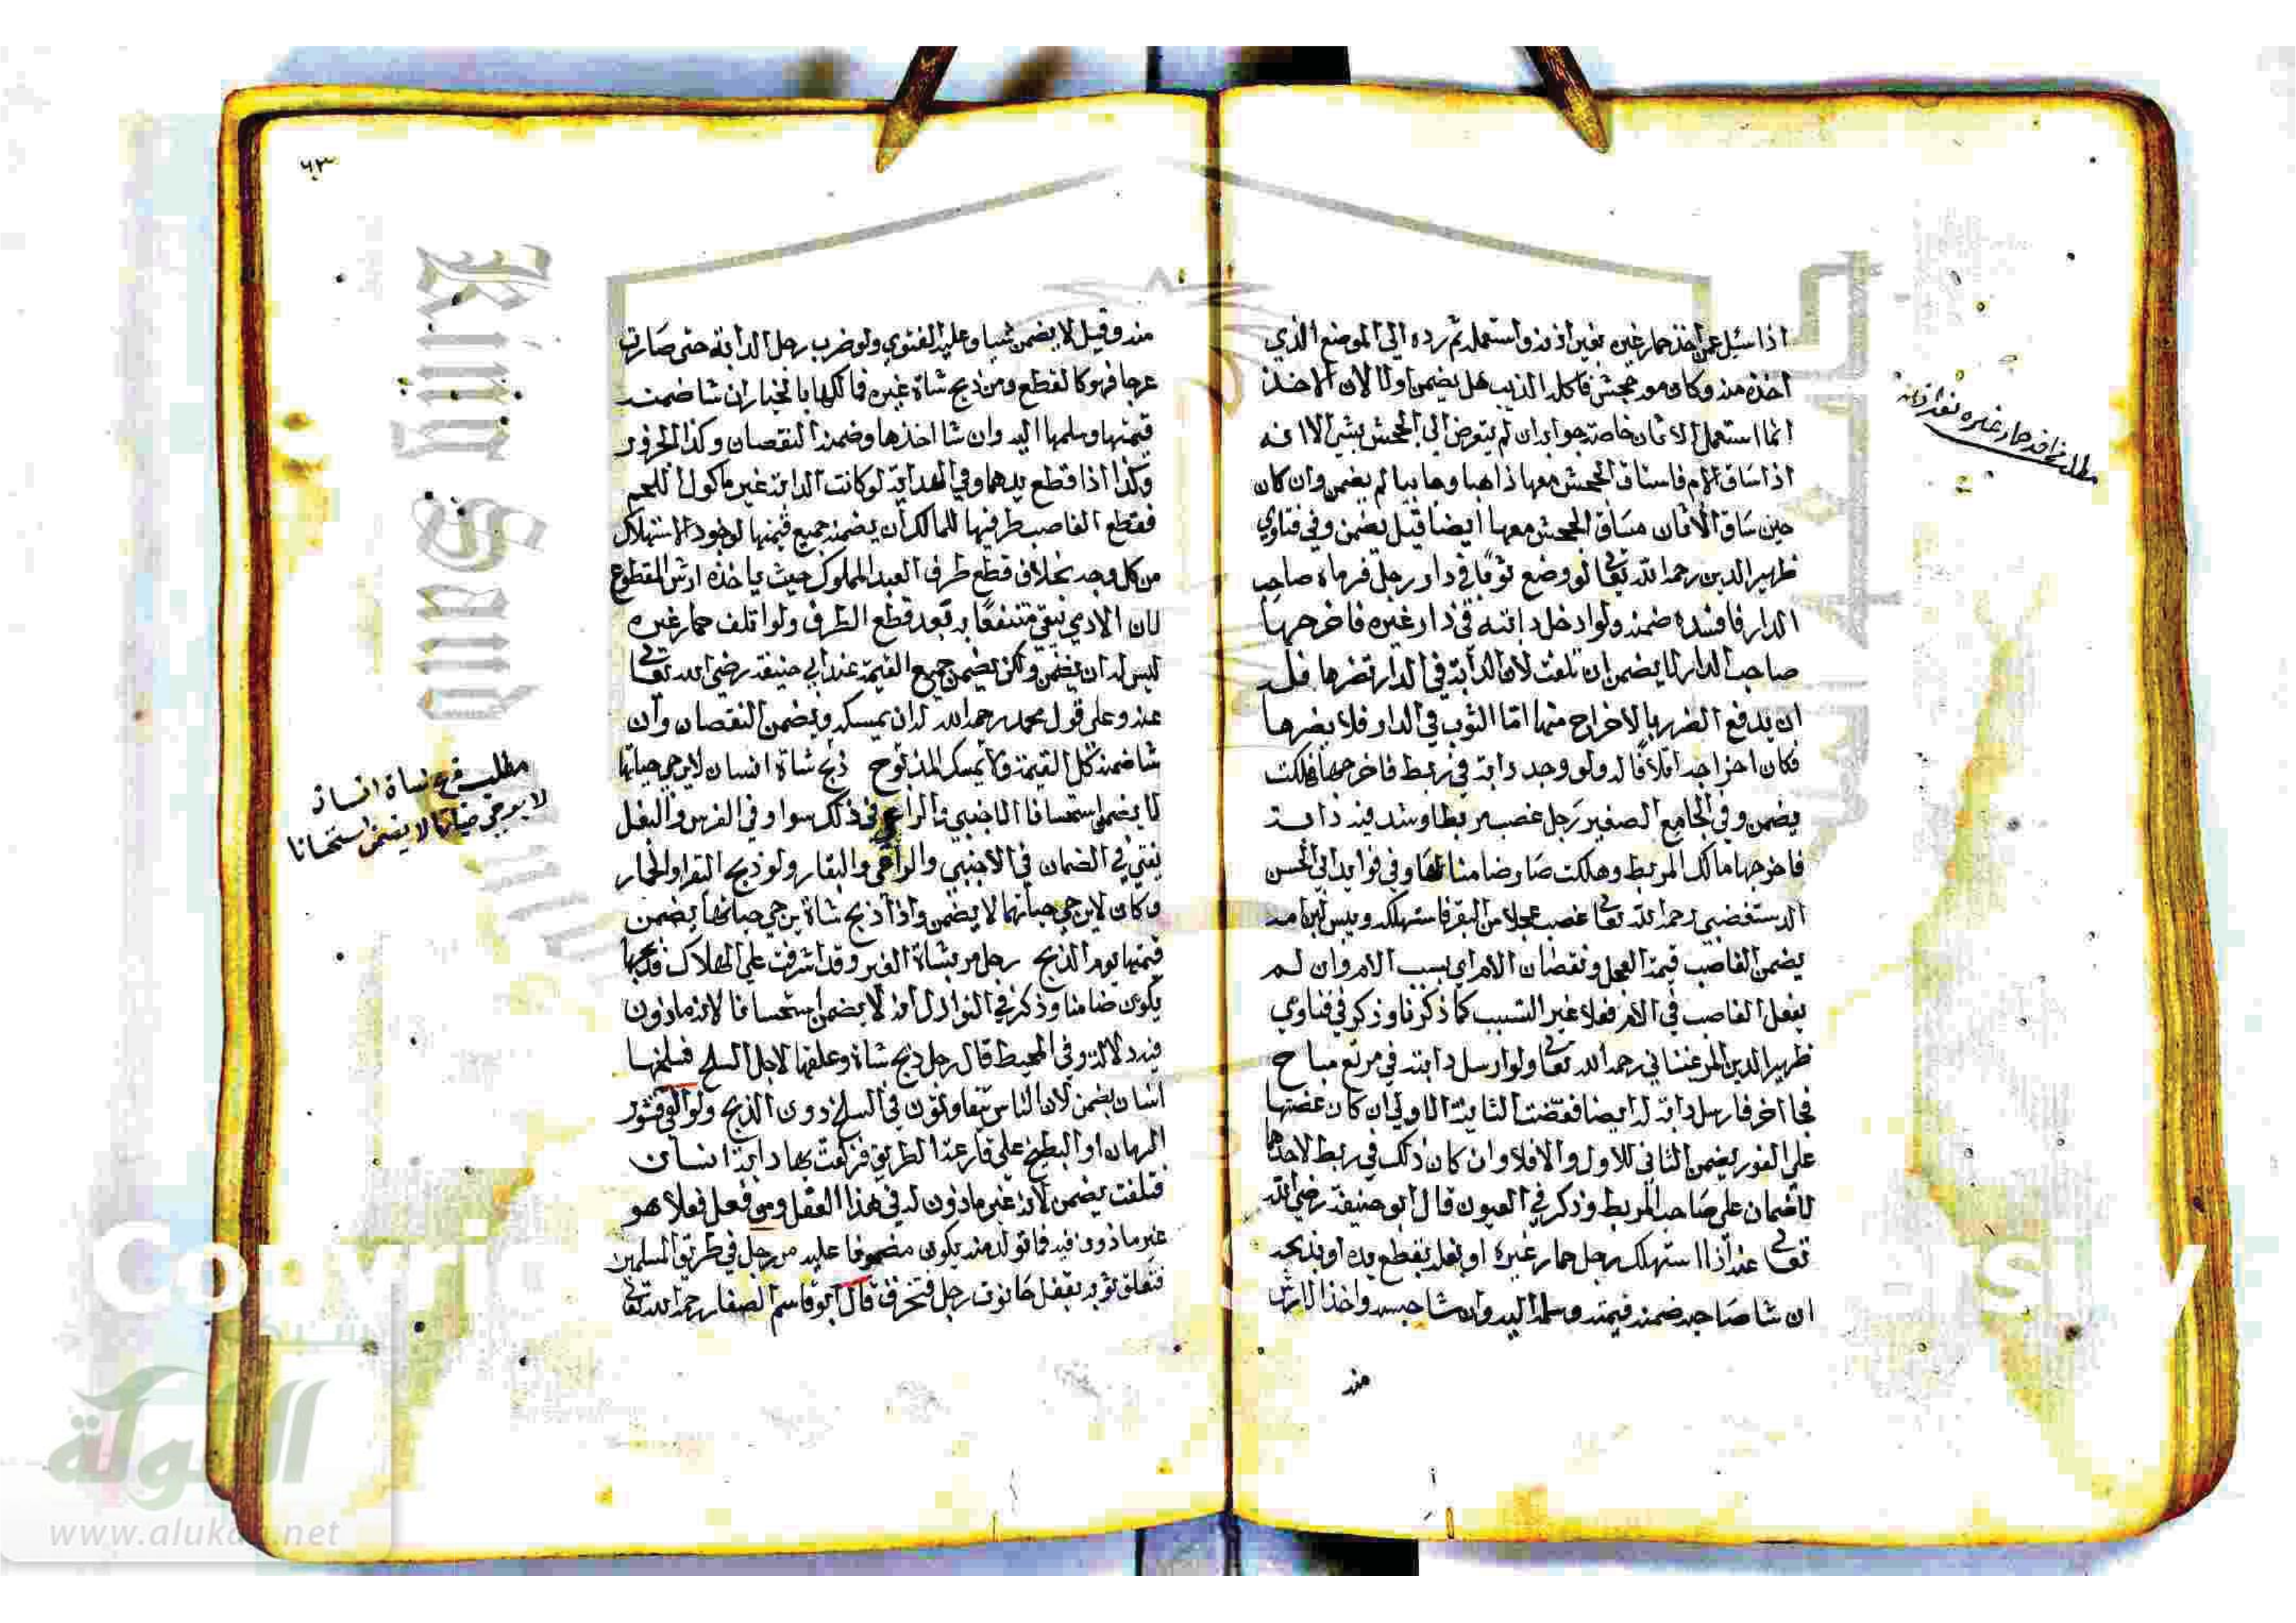 اذا سئل عمن اخذ حمار غيره بغير اذنه واستعمله ثم رده الي الموضع الذي
اخذه منه وكان معه جحش فاكله الذيب هل يضمن اولا لان الاخذ
انما استعمل الاتان خاصة جوابه ان لم يتعرض الي الجحش بشي الا انه
اذا ساق الام فانساق الجحش معها ذاهبا وجايبا لم يضمن وان كان
حين ساق الاتان مساق الجحش معها ايضا قيل يضمن وفي فتاوي
ظهير الدين رحمه الله تعالى لو وضع ثوبا في دار رجل فرماه صاحب
الدار فافسده ضمنه ولو ادخل دابته في دار غيره فاخرجها
صاحب الدار لا يضمن ان تلفت لان الدابة في الدار تضرها فله
ان يدفع الضرر بالاخراج منها اما الثوب في الدار فلا يضرها
فكان اخراجه اتلافا له ولو وجد دابة في مربط فاخرجها فهلكت
يضمن وفي الجامع الصغير رجل غصب مربطا وشد فيه دابته
فاخرجها مالك المربط وهلكت صار ضامنا لها وفي فوايد ابي الحسن
الرستغفني رحمه الله تعالى غصب عجلا من البقر فاستهلكه ويبس لبن امه
يضمن الغاصب قيمة العجل ونقصان الام اي بسبب الام وان لم
يفعل الغاصب في الام فعلا غير التسبب كما ذكرنا وذكر في فتاوي
ظهير الدين المرغيناني رحمه الله تعالى ولو ارسل دابته في مرتع مباح
فجا اخر فارسل دابة له ايضا فعضت الثانية الاولي ان كان عضتها
علي الفور يضمن الثاني للاول والا فلا وان كان ذلك في مربط لاحدهما
لا ضمان علي صاحب المربط وذكر في العيون قال ابو حنيفة رضي الله
تعالى عنه اذا استهلك رجل حمار غيره او بغله بقطع يده او بذبحه
ان شا صاحبه ضمنه قيمته وسلمه اليه وان شا حبسه واخذ الارش
منه
مطلب اخذ حمار غيره بغير اذنه
٦٣
منه وقيل لا يضمن شيا وعليه الفتوي ولو ضرب رجل الدابة حتى صارت
عرجا فهو كالقطع ومن ذبح شاة غيره فمالكها بالخيار ان شا ضمنه
قيمتها وسلمها اليه وان شا اخذها وضمنه النقصان وكذا الجزور
وكذا اذا قطع يدهما وفي الهداية لو كانت الدابة غير ماكول اللحم
فقطع الغاصب طرفيها للمالك ان يضمنه جميع قيمتها لوجود الاستهلاك
من كل وجه بخلاف قطع طرف العبد المملوك حيث ياخذه ارش المقطوع
لان الادمي يبقي منتفعا به بعد قطع الطرف ولو اتلف حمار غيره
ليس له ان يضمن ولكن يضمن جميع القيمة عند ابي حنيفة رضي الله تعالى
عنه وعلي قول محمد رحمه الله له ان يمسكه ويضمن النقصان وان
شا ضمنه كل القيمة ولا يمسك المذبوح ذبح شاة انسان لا يرجي حياتها
لا يضمن استحسانا الاجنبي والراعي في ذلك سوا وفي الفرس والبغل
يفتي في الضمان في الاجنبي والراعي والبقار ولو ذبح البقر او الحمار
وكان لا يرجي حياتهما لا يضمن واذا ذبح شاة يرجي حياتها يضمن
قيمتها يوم الذبح رجل مر بشاة الغير وقد اشرفت علي الهلاك فذبحها
يكون ضامنا وذكر في النوازل انه لا يضمن استحسانا لانه ماذون
فيه دلالة وفي المحيط قال رجل ذبح شاة وعلقها لاجل السلخ فسلخها
انسان يضمن لان الناس يتفاوتون في السلخ دون الذبح ولو القي قشور
الرمان او البطيخ علي قارعة الطريق فزلقت بها دابة انسان
فتلفت يضمن لانه غير ماذون له في هذا الفعل ومن فعل فعلا هو
غير ماذون فيه فما تولد منه يكون مضمونا عليه مر رجل في طريق المسلمين
فتعلق ثوبه بقفل حانوت رجل فتخرق قال ابو قاسم الصفار رحمه الله تعالى
مطلب ذبح شاة انسان
لا يرجي حياتها لا يضمن استحسانا
شبكة
الألوكة
www.alukah.net
King Saud
Copyri
sity